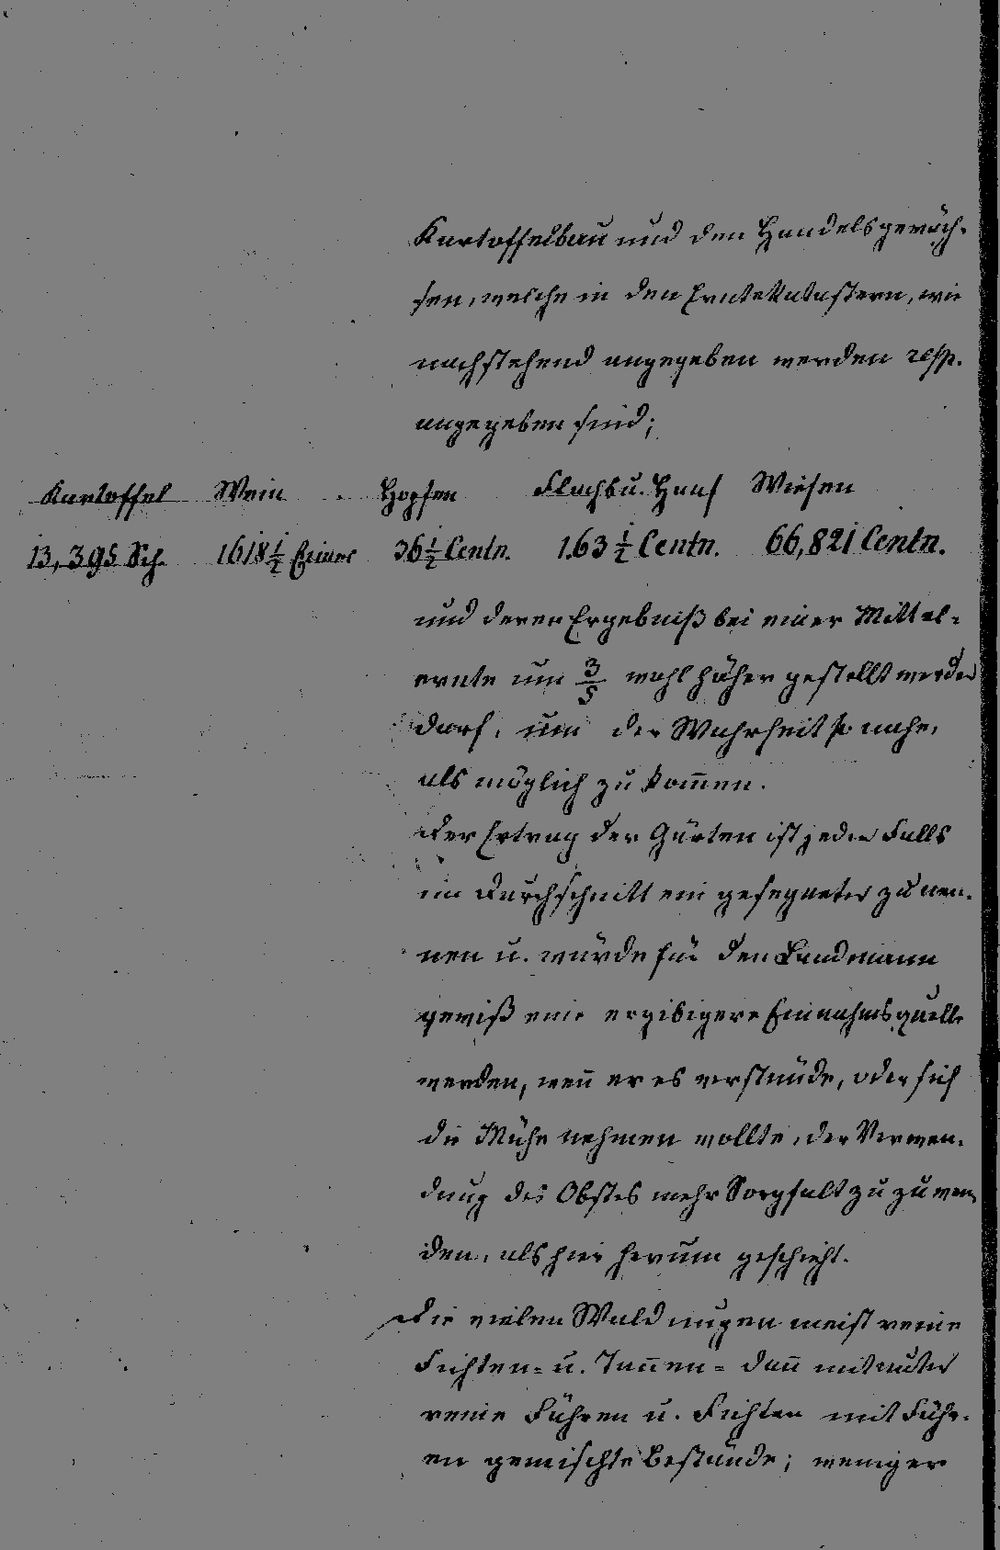 Kartoffelbau und den Handelsgewäch-
sen, welche in den Erntekatastern, wie
nachstehend angegeben werden resp.
angegeben sind;
Kartoffel Wein Hopfen Flachs u. Hanf Wiesen
13,395 Sch. 1618 1/2 Eimer 36 1/2 Centn. 163 1/2 Centn. 66,821 Centn.
und deren Ergebniß bei einer Mittel-
ernte um 3/5 wohl höher gestellt werden
darf, um der Wahrheit so nahe,
als möglich zu kom̄en.
Der Ertrag der Gärten ist jeden Falls
im Durchschnitt ein gesegneter zu nen-
nen u. würde für den Landmann
gewiß eine ergibigere Einnahmsquelle
werden, wen̄ er es verstünde, oder sich
die Mühe nehmen wollte, der Verwen-
dung des Obstes mehr Sorgfalt zu zu wen-
den, als hier herum geschieht.
Die vielen Waldungen meist reine
Fichten- u. Tan̄en- dan̄ mitunter
reine Föhren u. Fichten mit Föhr-
en gemischte Bestände; weniger